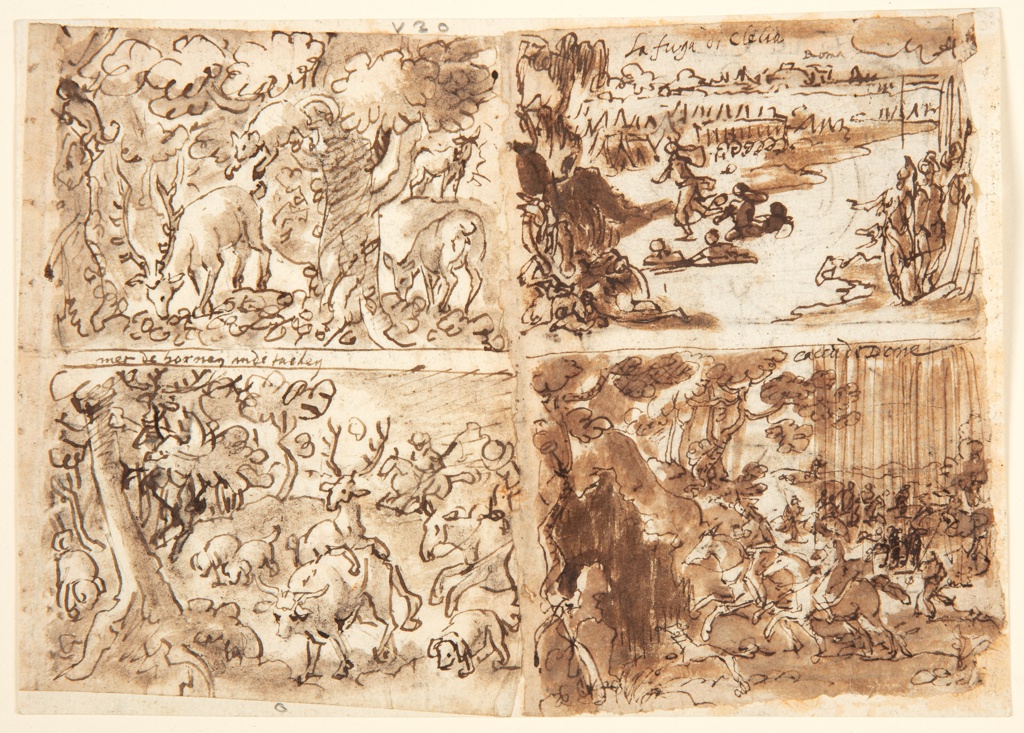 V30
La fuga di Clelia
Roma
met de hornen inde tacken
caccia di Done